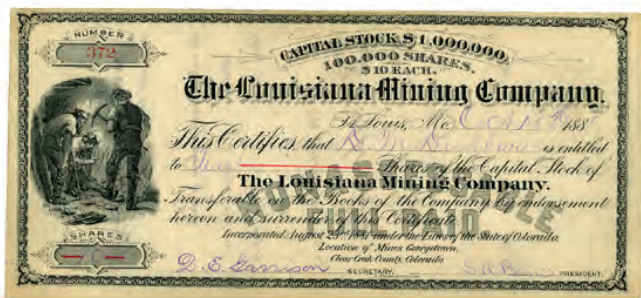 NUMBER
372
CAPITAL STOCK $1,000,000,
100,000 SHARES.
$10 EACH.
The Louisiana Mining Company.
St. Louis, Mo. Oct 188
This Certifies, that is entitled
to Shares of the Capital Stock of
The Louisiana Mining Company.
Transferable on the Books of the Company by endorsement
hereon and surrender of this Certificate.
Incorporated August 23rd under the Laws of the State of Colorado.
Location of Mines Georgetown,
Clear Creek County, Colorado.
SHARES
D. E. Garrison
SECRETARY.
PRESIDENT.